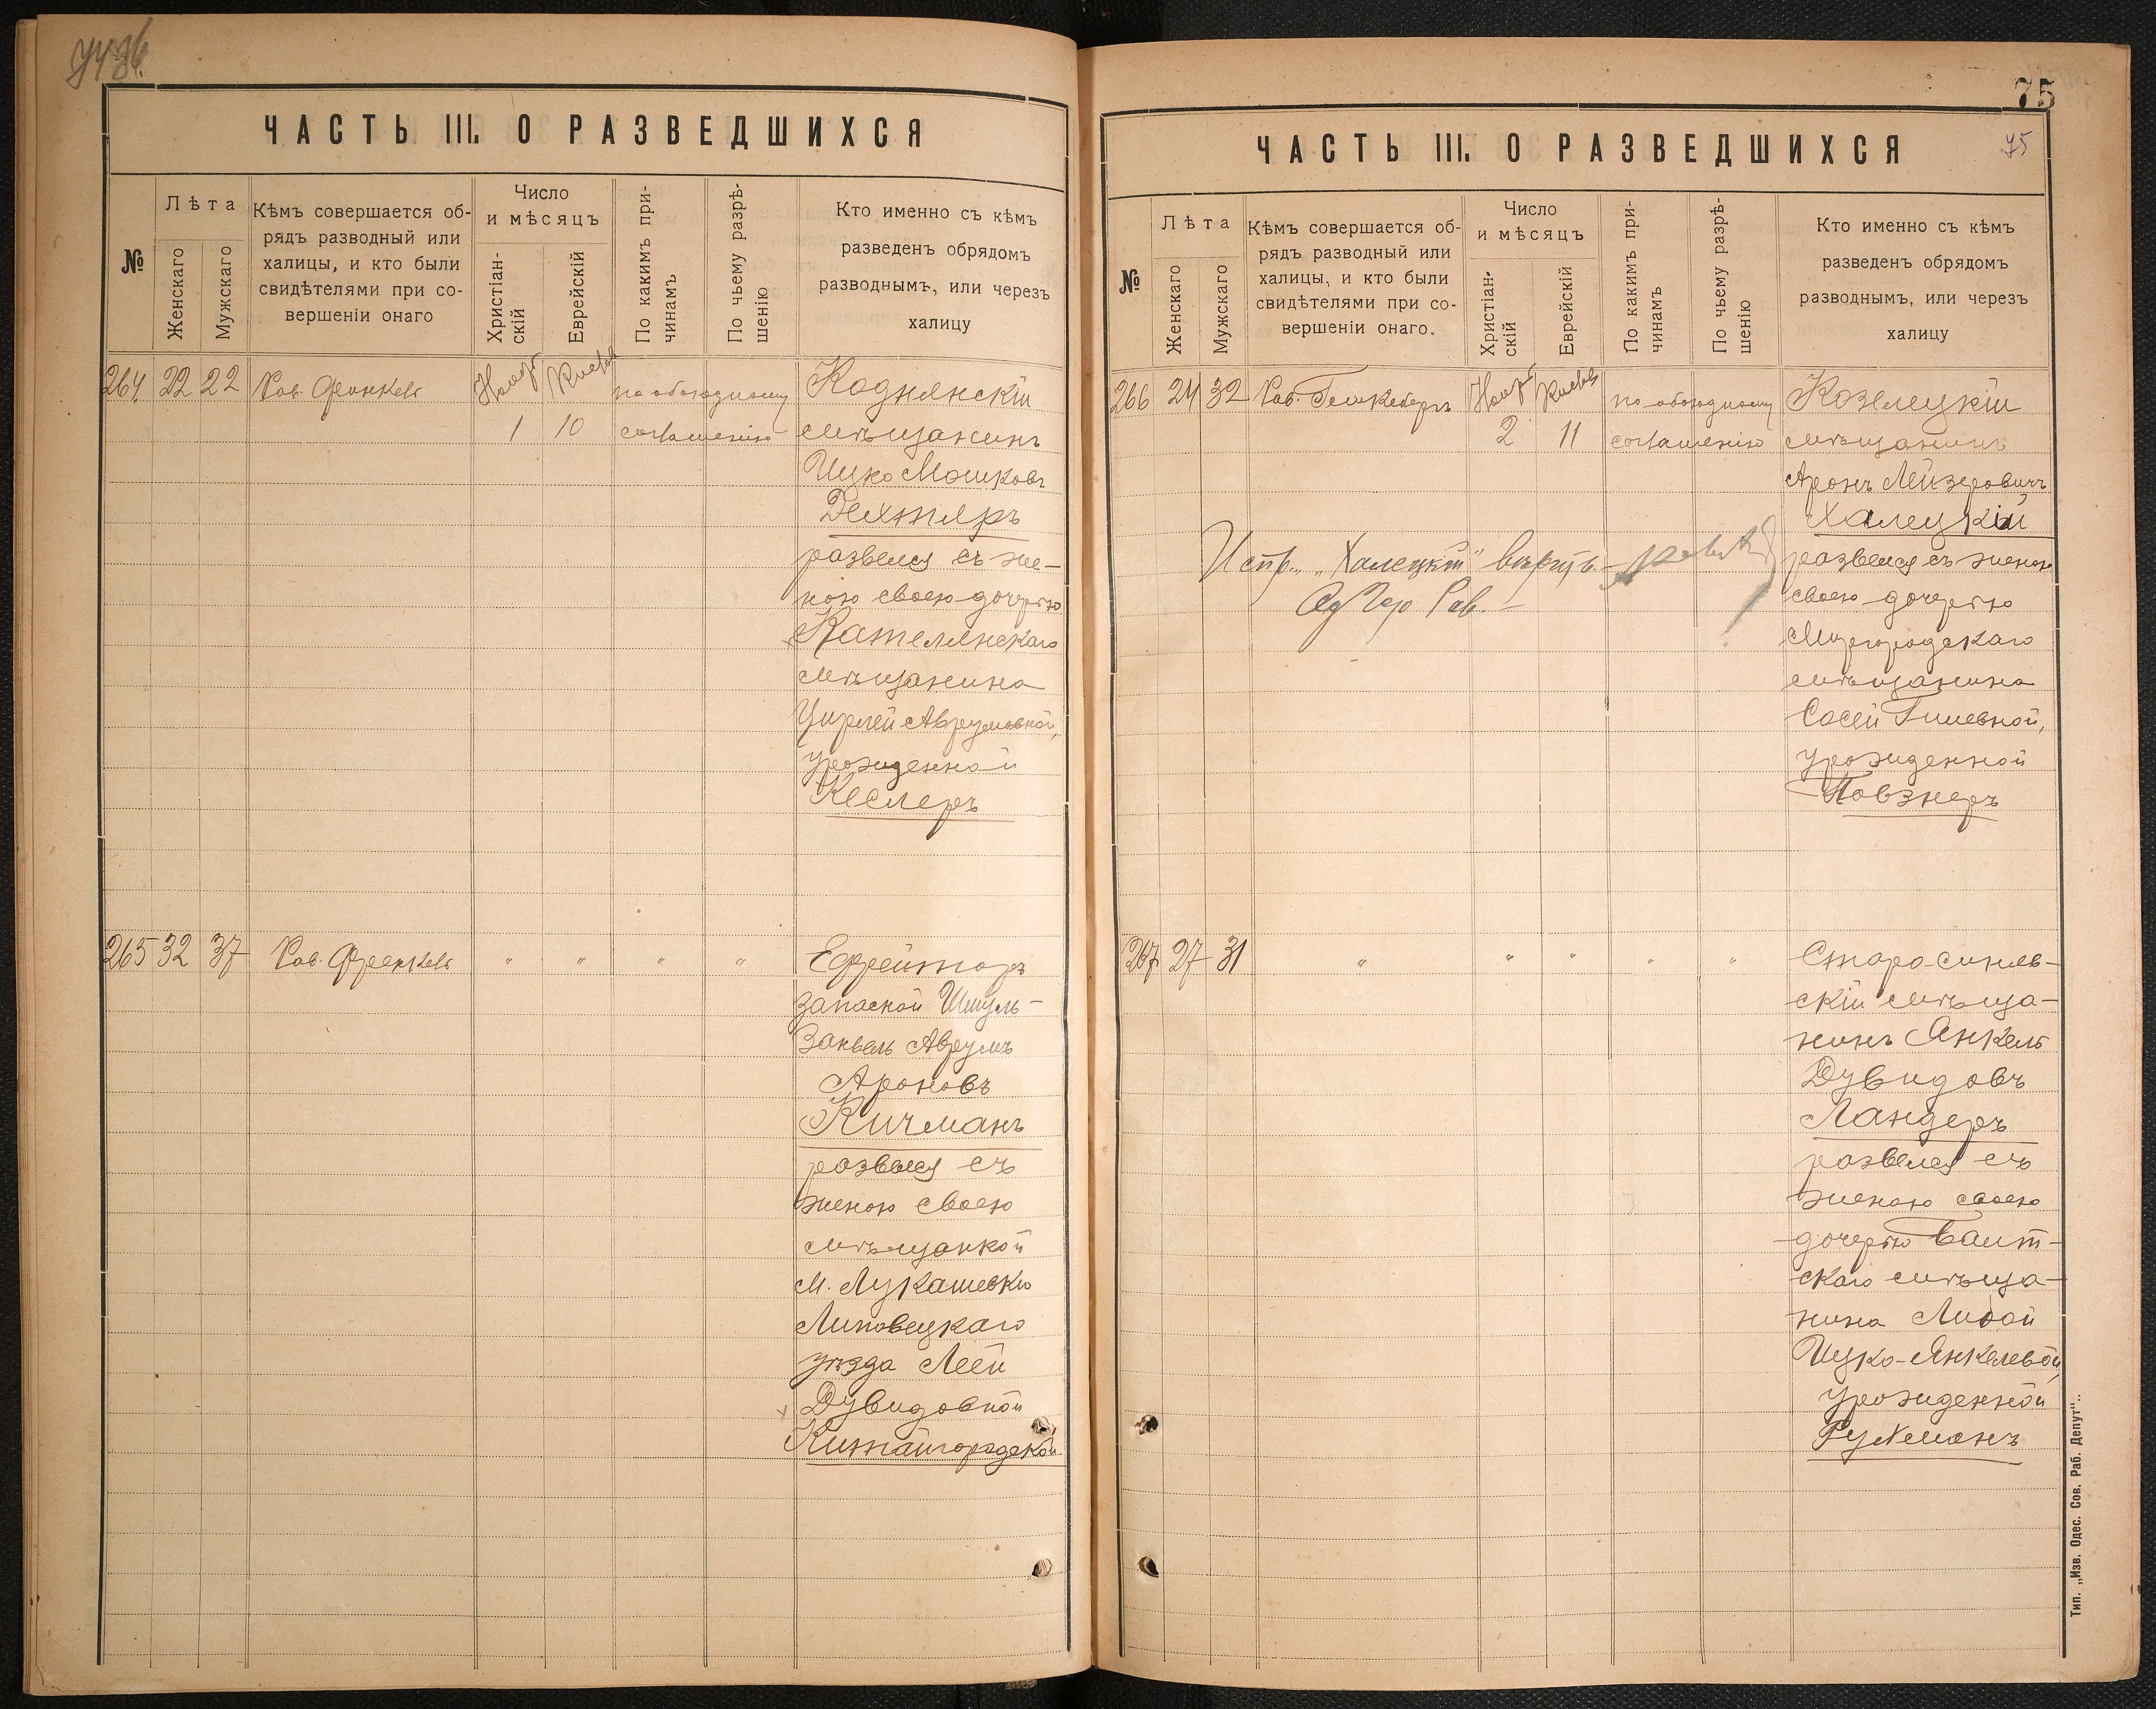 ЧАСТЬ III. О РАЗВЕДШИХСЯ
№
Лѣта
Женскаго
Мужскаго
Кѣмъ совершается об-
рядъ разводный или
халицы, и кто были
свидѣтелями при со-
вершеніи онаго
Число
и мѣсяцъ
Христіан-
скій
Еврейскій
По какимъ при-
чинамъ
По чьему разрѣ-
шенію
Кто именно съ кѣмъ
разведенъ обрядомъ
разводнымъ, или черезъ
халицу
264 22 22 Рав. Френкель Ноябр Кислев по обоюдному Коднянскій
1 10 соглашенію мѣщанинъ
Ицко Мошковъ
Дехтяръ
развелся съ же-
ною своею дочерью
Кателянскаго
мѣщанина
Цирлей Аврумовной,
урожденной
Кеслеръ
265 32 37 Рав. Френкель " " " " Ефрейторъ
запасной Шмуль-
Занвель Аврумъ
Ароновъ
Кичманъ
развелся съ
женою своею
мѣщанкой
м. Лукашевки
Липовецкаго
уѣзда Леей
Дувидовной
Китайгородской
75
ЧАСТЬ III. О РАЗВЕДШИХСЯ
75
№
Лѣта
Женскаго
Мужскаго
Кѣмъ совершается об-
рядъ разводный или
халицы, и кто были
свидѣтелями при со-
вершеніи онаго.
Число
и мѣсяцъ
Христіан-
скій
Еврейскій
По какимъ при-
чинамъ
По чьему разрѣ-
шенію
Кто именно съ кѣмъ
разведенъ обрядомъ
разводнымъ, или черезъ
халицу
266 24 32 Рав. Гешкебергъ Ноябр Кислев по обоюдному Козелецкій
2 11 соглашенію мѣщанинъ
Аронъ Лейзеровичъ
Халецкій
Испр. "Халецкій" вѣрить.
Од Гор Рав.
развелся съ женою
своею дочерью
Миргородскаго
мѣщанина
Сосей Гилевной,
урожденной
Повзнеръ
267 27 31 " " " " " Старо-синяв-
скій мѣща-
нинъ Янкель
Дувидовъ
Ландеръ
развелся съ
женою своею
дочерью Балт-
скаго мѣща-
нина Либой
Ицко-Янкелевой,
урожденной
Рухманъ
Тип. „Изв. Одес. Сов. Раб. Депут".